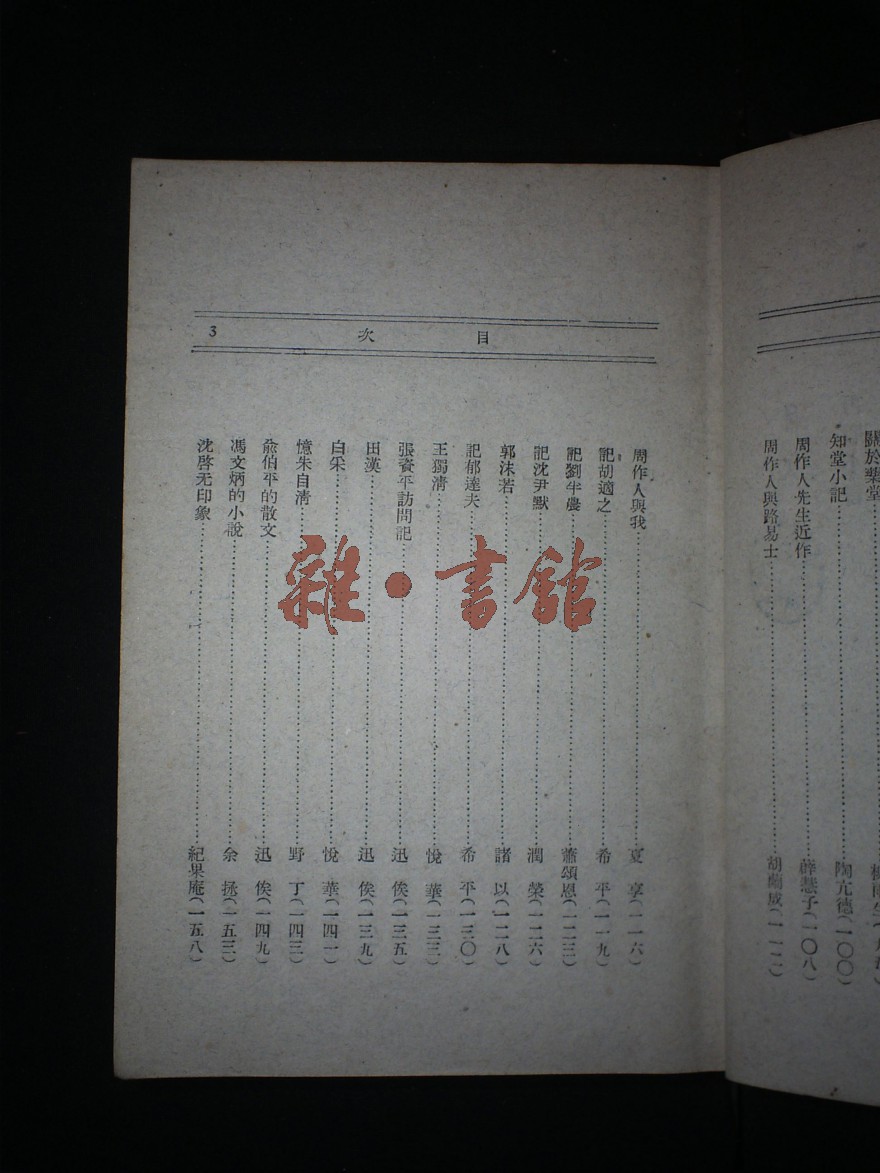 關於藥堂
知堂小記……陶亢德(一〇〇)
周作人先生近作……薛慧子(一〇八)
周作人與路易士……胡蘭成(一一二)
目次
3
周作人與我……夏享(一一六)
記胡適之……希平(一一九)
記劉半農……蕭頌恩(一二三)
記沈尹默……潤榮(一二六)
郭沫若……諸以(一二八)
記郁達夫……希平(一三〇)
王獨清……悅華(一三三)
張資平訪問記……迅俟(一三五)
田漢……迅俟(一三九)
白采……悅華(一四一)
憶朱自清……野丁(一四三)
俞伯平的散文……迅俟(一四九)
馮文炳的小說……余拯(一五三)
沈啓无印象……紀果庵(一五八)
雜·書館